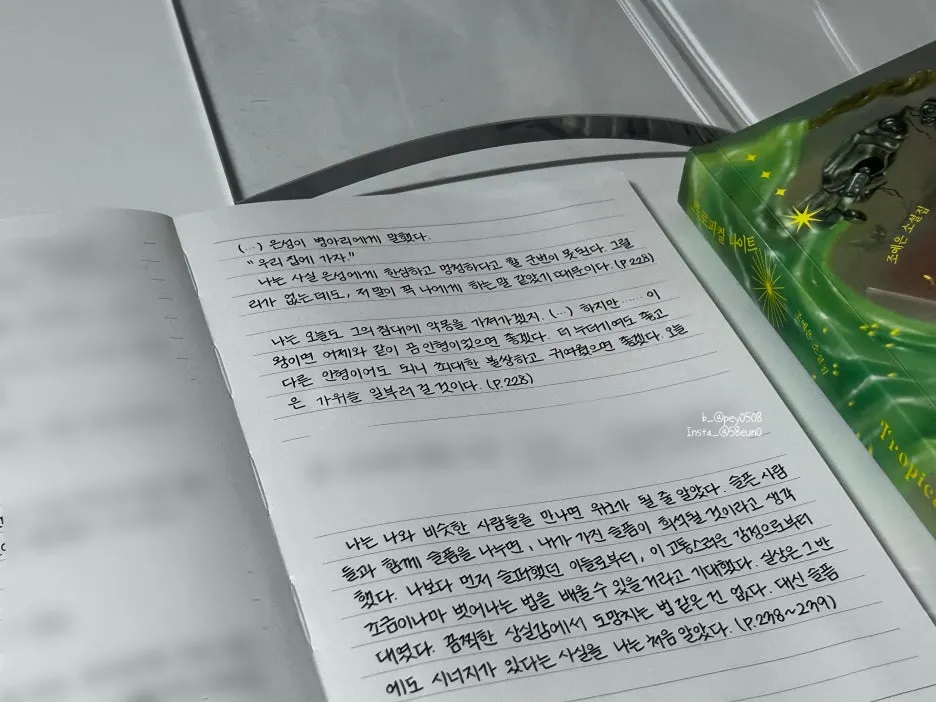 (...) 은성이 병아리에게 말했다.
"우리 집에 가자."
나는 사실 은성에게 한심하고 멍청하다고 할 군번이 못 된다. 그럴
리가 없는데도, 저 말이 꼭 나에게 하는 말 같았기 때문이다. (P.223)
나는 오늘도 그의 침대에 악몽을 가져가겠지. (...) 하지만 …… 이
왕이면 어제와 같이 곰 인형이었으면 좋겠다. 더 누더기여도 좋고
다른 인형이어도 되니 최대한 불쌍하고 귀여웠으면 좋겠다. 오늘
은 가위를 일부러 걸 것이다. (P.228)
b_@pey0508
Insta_@58eun0
나는 나와 비슷한 사람들을 만나면 위로가 될 줄 알았다. 슬픈 사람
들과 함께 슬픔을 나누면, 내가 가진 슬픔이 희석될 것이라고 생각
했다. 나보다 먼저 슬퍼했던 이들로부터, 이 고통스러운 감정으로부터
조금이나마 벗어나는 법을 배울 수 있을 거라고 기대했다. 실상은 그 반
대였다. 끔찍한 상실감에서 도망치는 법 같은 건 없다. 대신 슬픔
에도 시너지가 있다는 사실을 나는 처음 알았다. (P.238~239)
트로피컬 나이트
조예은 소설집
조예은 소설집
Tropic